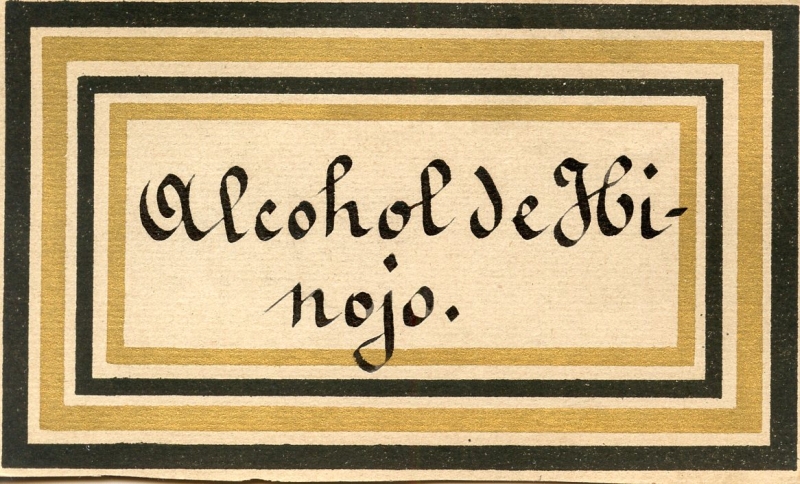 Alcohol de Hi-
nojo.